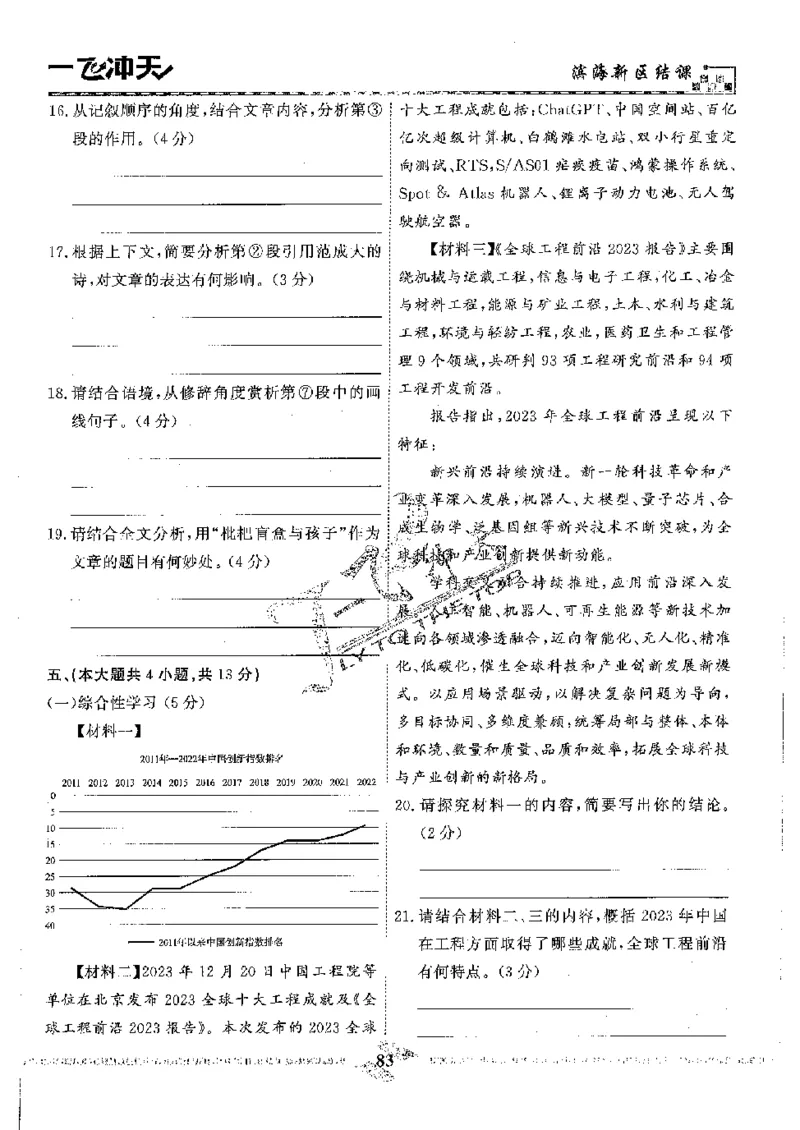 一飞冲天
滨海新区结课
16. 从记叙顺序的角度,结合文章内容,分析第③
段的作用。(4分)
17. 根据上下文,简要分析第②段引用范成大的
诗,对文章的表达有何影响。(3分)
18. 请结合语境,从修辞角度赏析第⑦段中的画
线句子。(4分)
19. 请结合全文分析,用“枇杷盲盒与孩子”作为
文章的题目有何妙处。(4分)
五、(本大题共4小题,共13分)
(一)综合性学习(5分)
【材料一】
2011年—2022年中国创新指数排名
2011 2012 2013 2014 2015 2016 2017 2018 2019 2020 2021 2022
0
5
10
15
20
25
30
35
40
2011年以来中国创新指数排名
【材料二】2023年12月20日中国工程院等
单位在北京发布2023全球十大工程成就及《全
球工程前沿2023报告》。本次发布的2023全球
十大工程成就包括:ChatGPT、中国空间站、百亿
亿次超级计算机、白鹤滩水电站、双小行星重定
向测试、RTS,S/AS01疟疾疫苗、鸿蒙操作系统、
Spot & Atlas机器人、锂离子动力电池、无人驾
驶航空器。
【材料三】《全球工程前沿2023报告》主要围
绕机械与运载工程,信息与电子工程,化工、冶金
与材料工程,能源与矿业工程,土木、水利与建筑
工程,环境与轻纺工程,农业,医药卫生和工程管
理9个领域,共研判93项工程研究前沿和94项
工程开发前沿。
报告指出,2023年全球工程前沿呈现以下
特征:
新兴前沿持续演进。新一轮科技革命和产
业变革深入发展,机器人、大模型、量子芯片、合
成生物学、泛基因组等新兴技术不断突破,为全
球科技和产业创新提供新动能。
学科交叉融合持续推进,应用前沿深入发
展。人工智能、机器人、可再生能源等新技术加
速向各领域渗透融合,迈向智能化、无人化、精准
化、低碳化,催生全球科技和产业创新发展新模
式。以应用场景驱动,以解决复杂问题为导向,
多目标协同、多维度兼顾,统筹局部与整体、本体
和环境、数量和质量、品质和效率,拓展全球科技
与产业创新的新格局。
20. 请探究材料一的内容,简要写出你的结论。
(2分)
21. 请结合材料二、三的内容,概括2023年中国
在工程方面取得了哪些成就,全球工程前沿
有何特点。(3分)
83